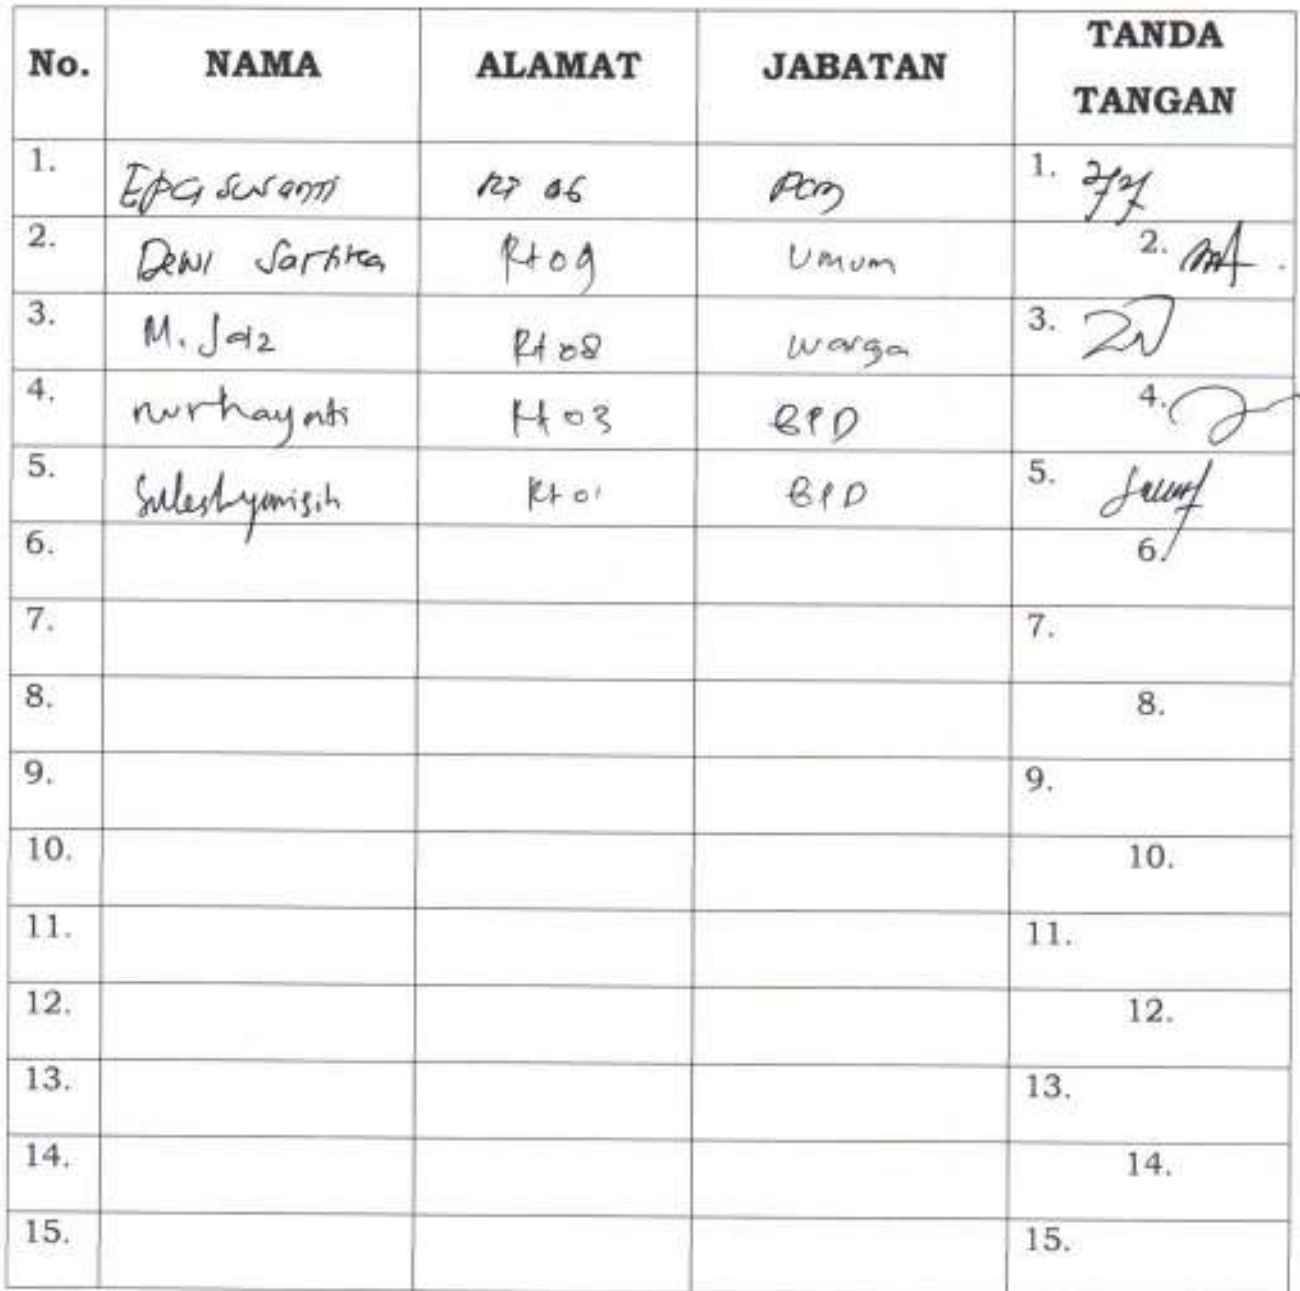 No. NAMA ALAMAT JABATAN TANDA TANGAN
1. Epa susanti RT 06 1.
2. Dewi Sartika Rt 09 Umum 2.
3. M. Jaiz Rt 08 warga 3.
4. nurhayati Rt 03 BPD 4.
5. Rt 01 BPD 5.
6. 6.
7. 7.
8. 8.
9. 9.
10. 10.
11. 11.
12. 12.
13. 13.
14. 14.
15. 15.